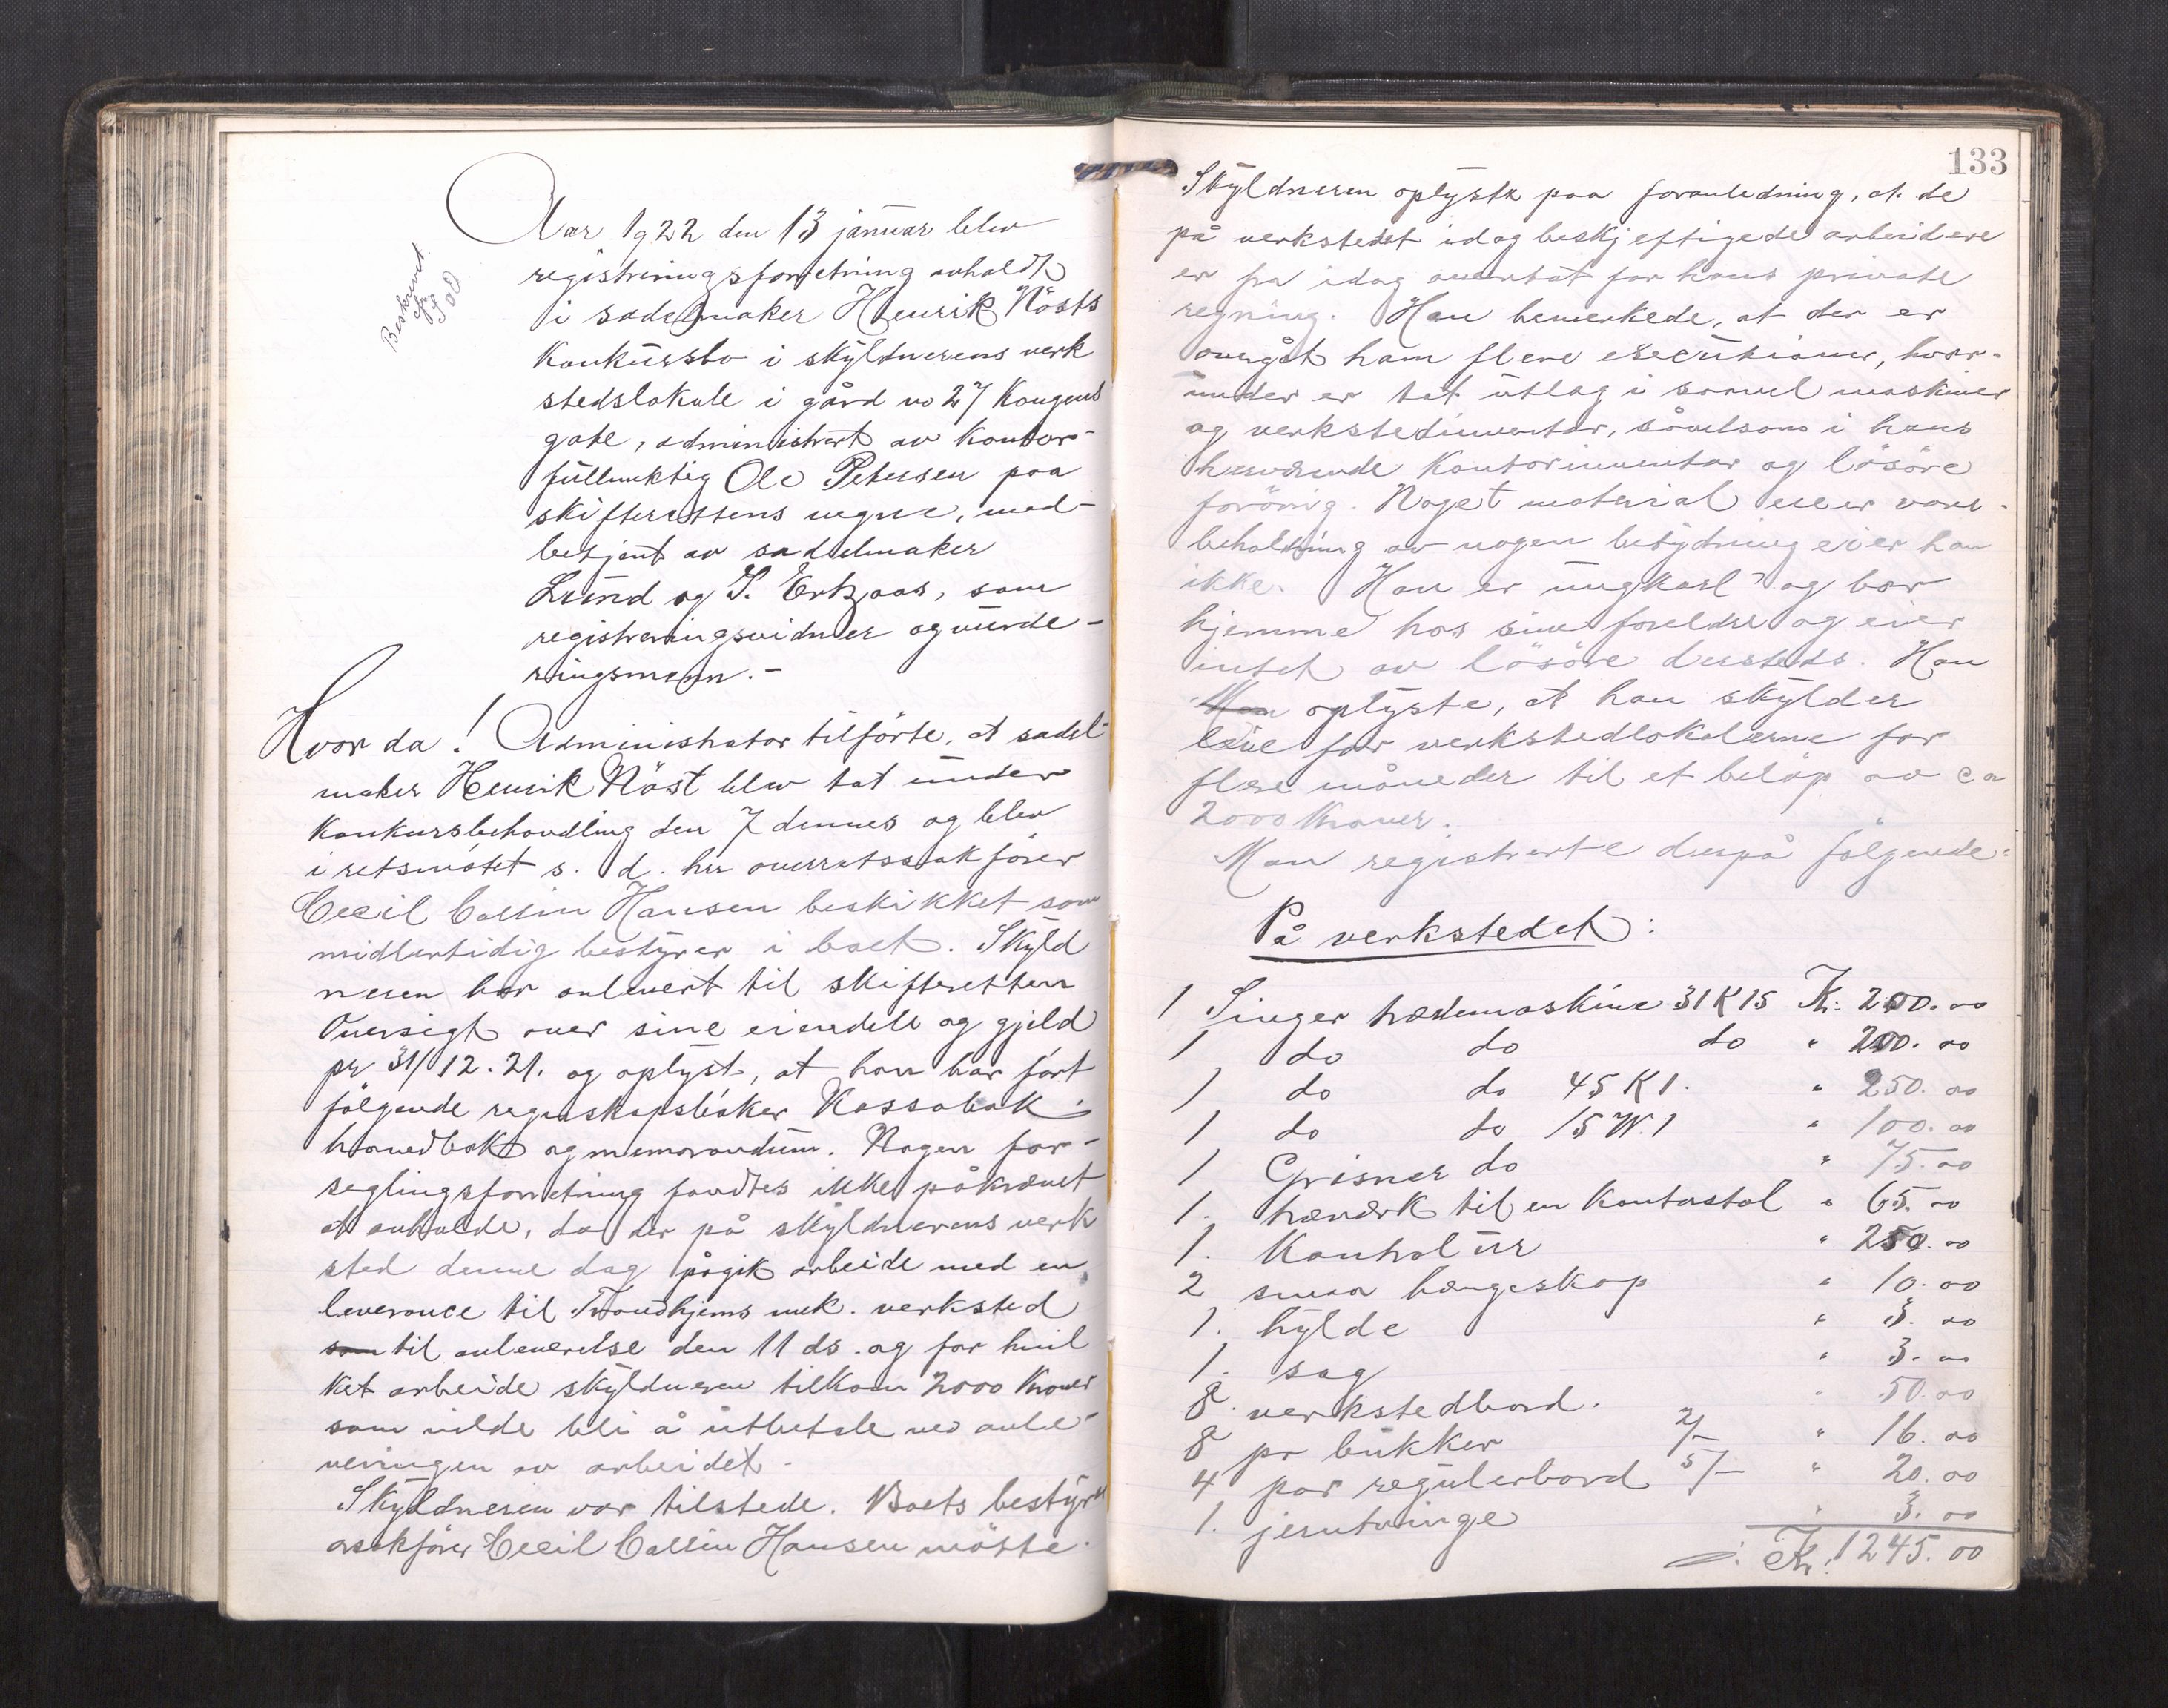 Aar 1922 den 13 januar blev
registreringsforretning avholdt
i sadelmaker Henrik Nösts
Konkursbo i skyldnerens verk
stedslokale i gård no 27 Kongens
gate, administrert av Kontor-
fullmektig Ole Petersen paa
skifterettens vegne, med-
betjent av sadelmaker
Lund og I. Erkjaas, som
registreringsvidner og vurde-
ringsmenn.-
Beskrevet
Hvor da! Administrator tilförte, at sadel-
maker Henrik Nöst blev tat under
Konkursbehandling den 7 dennes og blev
i retsmötet s. d. hr overretssakförer
Cecil Collin Hansen beskikket som
midlertidig bestyrer i boet. Skyld
neren har avlevert til skifteretten
Oversigt over sine eiendele og gjeld
pr 31/12.21. og oplyst, at han har fört
fölgende regnskapsböker Kassabok
hovedbok og memorandum. Nogen for-
seglingsforretning fandtes ikke påkrævet
at avholde, da der på skyldnerens verk
sted denne dag pågik arbeide med en
leverance til Trondhjems mek. verksted
som til avleverelse den 11 ds. og for hvil
ket arbeide skyldneren tilkom 2000 Kroner
som vilde bli å utbetale ved avle-
veringen av arbeidet.
Skyldneren var tilstede. Boets bestyrer
orsakförer Cecil Collin Hansen mötte.
133
Skyldneren oplyste paa foranledning, at de
på verkstedet idag beskjeftigede arbeidere
er fra idag overtat for hans private
regning. Han bemerkede, at der er
overgåt ham flere executioner, hvor-
under er tat utlæg i saavel maskiner
og verkstedinventar, såvelsom i hans
henværende Kontorinventar og lösöre
forövrig. Noget material eller vare-
beholdning av nogen betydning eier han
ikke. Han er ungkarl og bor
hjemme hos sine foreldre og eier
intet av lösöre dersteds. Han
Man oplyste, at han skylder
leie for verkstedlokalerne for
flere måneder til et belöp av ca
2000 Kroner.
Man registrerte derpå fölgende:
På verkstedet:
1 Singer trædemaskine 31 K 15 Kr. 200.00
1 do do do " 200.00
1 do do 45 K 1. " 250.00
1 do do 15 W. 1 " 100.00
1 Grisner do " 75.00
1. træværk til en Kontorstol " 65.00
1. Kontrol ur " 250.00
2 smaa hængeskap " 10.00
1. hylde " 3.00
1. sag " 3.00
8. verkstedbord. " 50.00
8 pr bukker 2/- " 16.00
4 par regulerbord 5/- " 20.00
1. jerntvinge " 3.00
Kr. 1245.00